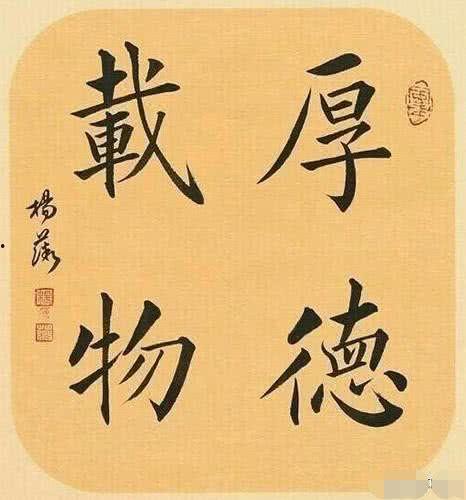 厚德
載物
楊